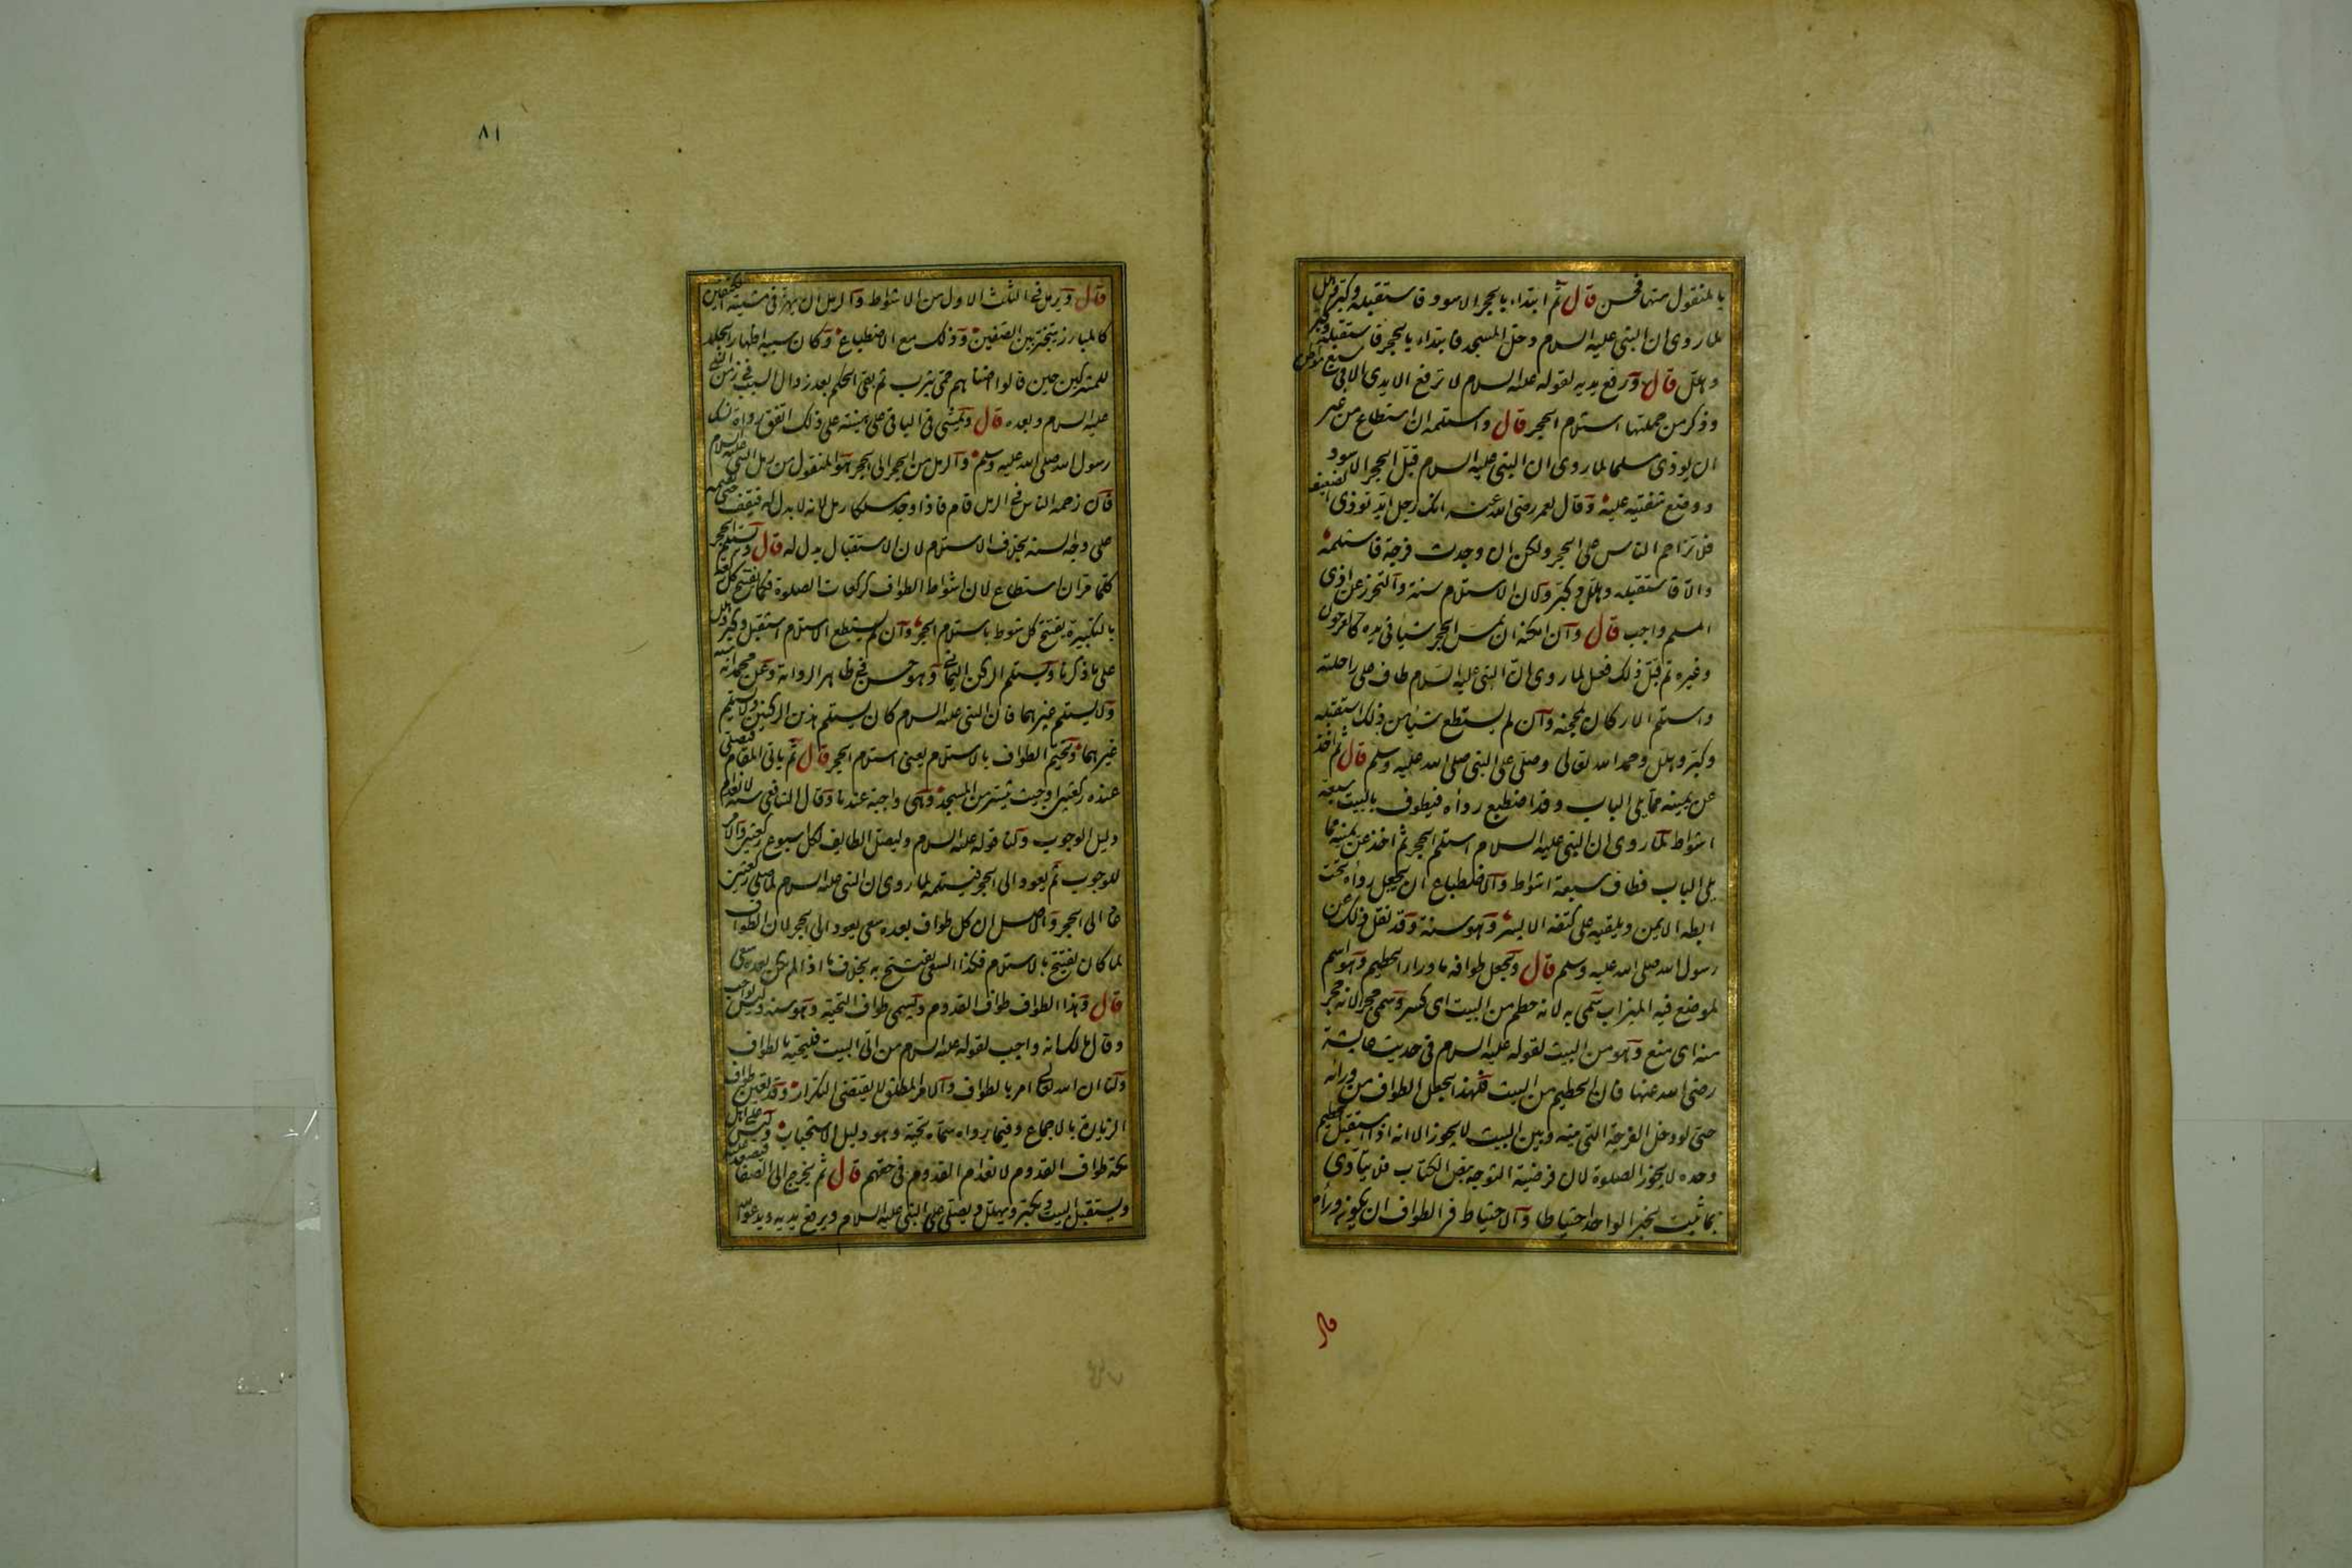 بالمنقول منها فحسن قال ثم ابتداء بالحجر الاسود فاستقبله وكبر وهلل
لما روى ان النبى عليه السلام دخل المسجد فابتداء بالحجر فاستقبله وكبر
وهلل قال ويرفع يديه لقوله عليه السلام لا ترفع الايدى الا فى سبع مواطن
وذكر من جملتها استلام الحجر قال واستلمه ان استطاع من غير
ان يوذى مسلما لما روى ان النبى عليه السلام قبل الحجر الاسود
ووضع شفتيه عليه وقال لعمر رضى الله عنه انك رجل ايد توذى الضعيف
فلا تزاحم الناس على الحجر ولكن ان وجدت فرجة فاستلمه
والا فاستقبله وهلل وكبر ولان الاستلام سنة والتحرز عن اذى
المسلم واجب قال وان امكنه ان يمس الحجر شيأ فى يده كالعرجون
وغيره ثم قبل ذلك فعل لما روى ان النبى عليه السلام طاف على راحلته
واستلم الاركان بمحجنه وان لم يستطع شيأ من ذلك استقبله
وكبر وهلل وحمد الله تعالى وصلى على النبى صلى الله عليه وسلم قال ثم اخذ
عن يمينه مما يلى الباب وقد اضطبع رداه فيطوف بالبيت سبعة
اشواط لما روى ان النبى عليه السلام استلم الحجر ثم اخذ عن يمينه مما
يلى الباب فطاف سبعة اشواط والاضطباع ان يجعل رداه تحت
ابطه الايمن ويلقيه على كتفه الايسر وهو سنة وقد نقل ذلك عن
رسول الله صلى الله عليه وسلم قال ويجعل طوافه ما وراء الحطيم وهو اسم
لموضع فيه الميزاب سمى به لانه حطم من البيت اى كسر وسمى حجرا لانه حجر
منه اى منع وهو من البيت لقوله عليه السلام فى حديث عايشة
رضى الله عنها فان الحطيم من البيت فلهذا يجعل الطواف من ورائه
حتى لو دخل الفرجة التى بينه وبين البيت لا يجوز الا انه اذا استقبل الحطيم
وحده لا يجوز الصلوة لان فرضية التوجه بنص الكتاب فلا يتادى
بما ثبت بخبر الواحد احتياطا والاحتياط فى الطواف ان يكون وراه
قال
٨١
قال ويرمل فى الثلث الاول من الاشواط والرمل ان يهز فى مشيته الكتفين
كالمبارز يتبختر بين الصفين وذلك مع الاضطباع وكان سببه اظهار الجلد
للمشركين حين قالوا اضناهم حمى يثرب ثم بقى الحكم بعد زوال السبب فى زمن النبى
عليه السلام وبعده قال ويمشى فى الباقى على هينته على ذلك اتفق رواة نسك
رسول الله صلى الله عليه وسلم والرمل من الحجر الى الحجر هو المنقول من رمل النبى عليه السلام
فان زحمه الناس فى الرمل قام فاذا وجد مسلكا رمل لانه لا بدل له فيقف حتى يقيمه
على وجه السنة بخلاف الاستلام لان الاستقبال بدل له قال ويستلم الحجر
كلما مر ان استطاع لان اشواط الطواف كركعات الصلوة فكما يفتتح كل ركعة
بالتكبيرة يفتتح كل شوط باستلام الحجر وان لم يستطع الاستلام استقبل وكبر وهلل
على ما ذكرنا ويستلم الركن اليمانى وهو حسن فى ظاهر الرواية وعن محمد انه سنة
ولا يستلم غيرهما فان النبى عليه السلام كان يستلم هذين الركنين ولا يستلم
غيرهما ويختم الطواف بالاستلام يعنى استلام الحجر قال ثم ياتى المقام فيصلى
عنده ركعتين او حيث تيسر من المسجد وهى واجبة عندنا وقال الشافعى سنة لانعدام
دليل الوجوب ولنا قوله عليه السلام وليصل الطايف لكل اسبوع ركعتين والامر
للوجوب ثم يعود الى الحجر فيستلمه لما روى ان النبى عليه السلام لما صلى ركعتين
عاد الى الحجر والاصل ان كل طواف بعده سعى يعود الى الحجر لان الطواف
لما كان يفتتح بالاستلام فكذا السعى يفتتح به بخلاف ما اذا لم يكن بعده سعى
قال وهذا الطواف طواف القدوم ويسمى طواف التحية وهو سنة وليس بواجب
وقال مالك انه واجب لقوله عليه السلام من اتى البيت فليحيه بالطواف
ولنا ان الله تعالى امر بالطواف والامر المطلق لا يقتضى التكرار وقد تعين طواف
الزيارة بالاجماع وفيما رواه سماه تحية وهو دليل الاستحباب وليس على اهل
مكة طواف القدوم لانعدام القدوم فى حقهم قال ثم يخرج الى الصفا فيصعد عليه
ويستقبل البيت ويكبر ويهلل ويصلى على النبى عليه السلام ويرفع يديه ويدعو الله